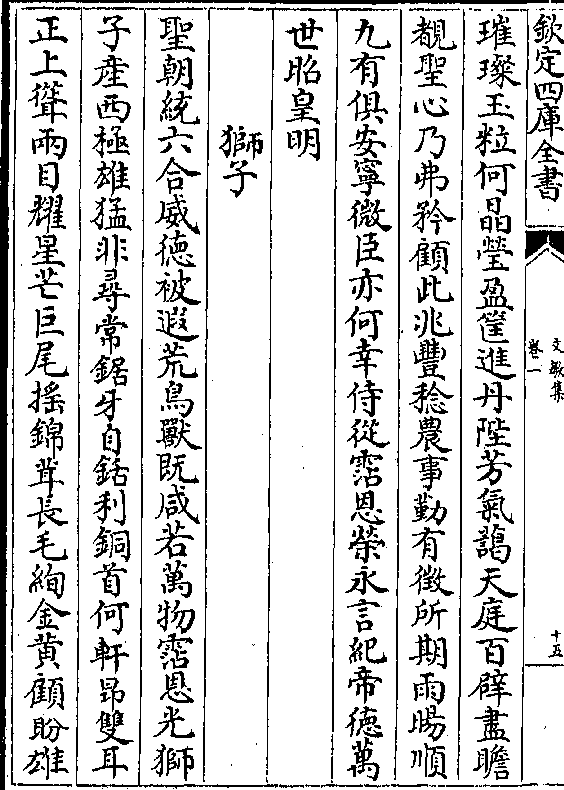 欽定四庫全書
文敏集
卷一
十五
璀璨玉粒何晶瑩盈筐進丹陛芳氣藹天庭百辟盡瞻
覩聖心乃弗矜顧此兆豐稔農事勤有徵所期雨暘順
九有俱安寧微臣亦何幸侍從霑恩榮永言紀帝德萬
世昭皇明
獅子
聖朝統六合威德被遐荒鳥獸既咸若萬物霑恩光獅
子產西極雄猛非尋常鋸牙自銛利銅首何軒昻雙耳
正上聳兩目耀星芒巨尾搖錦茸長毛絢金黃顧盼雄